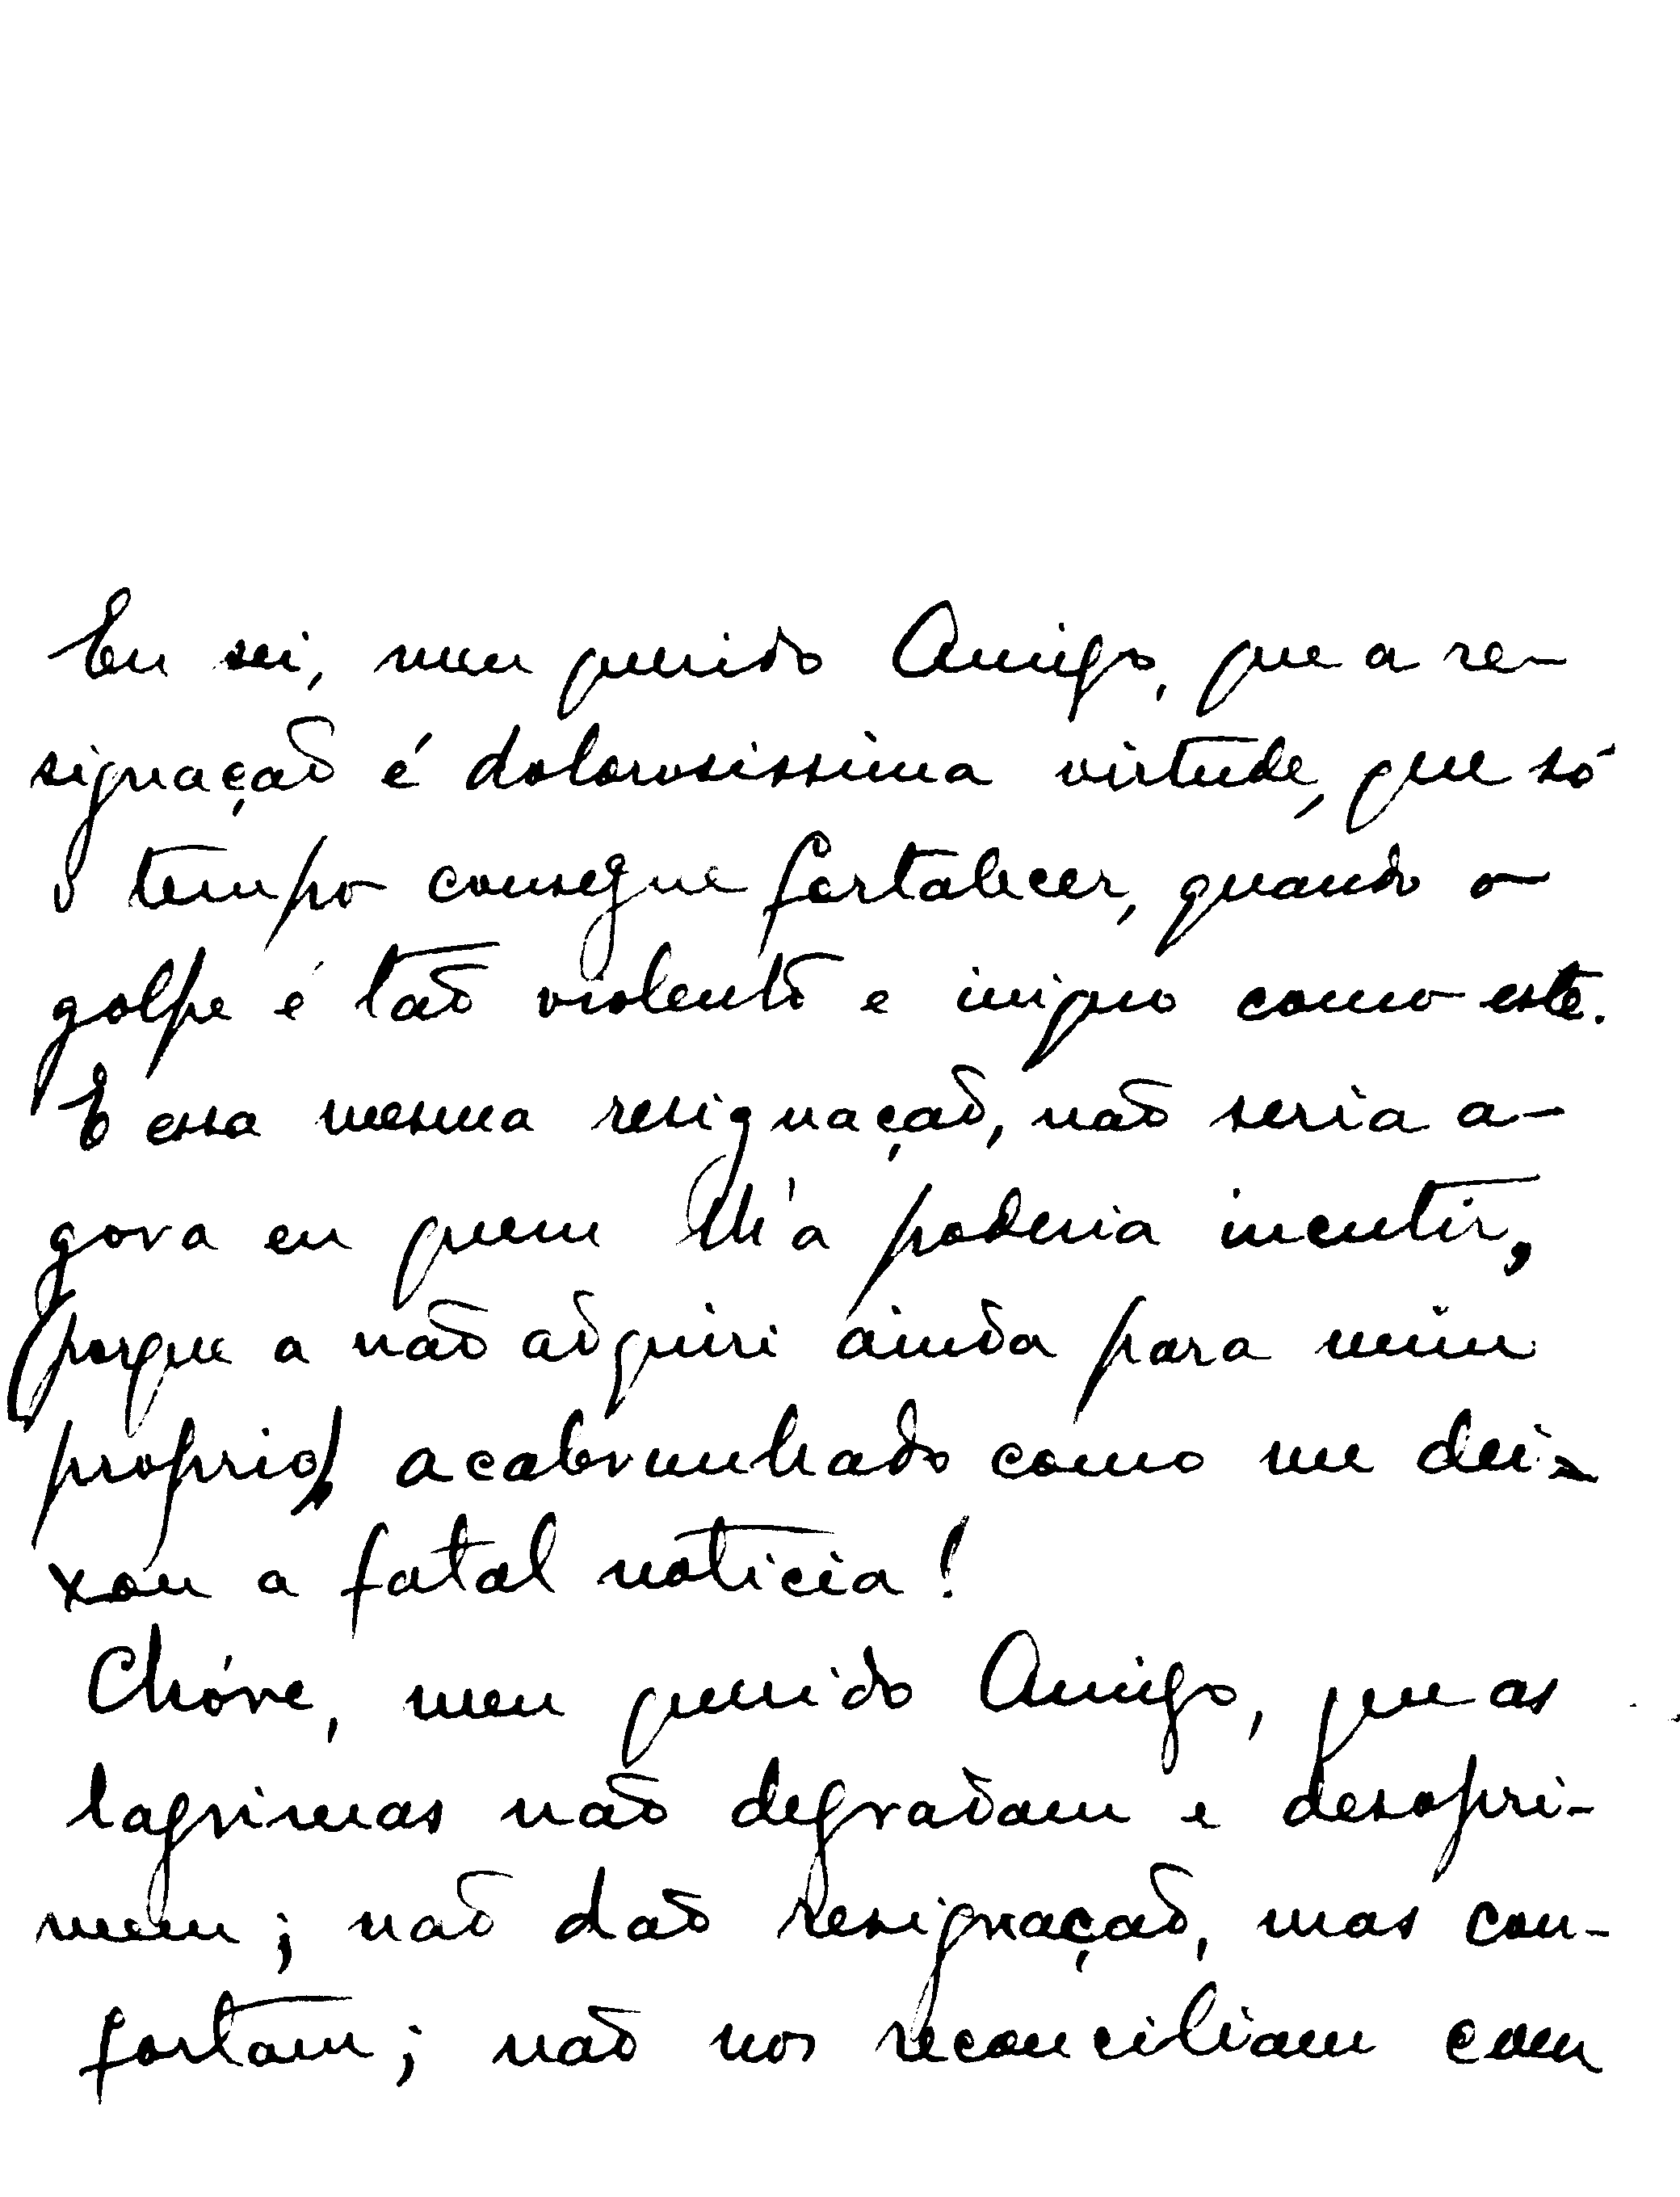 Eu sei, meu querido Amigo, que a re-
signação é dolorosissima virtude, que só
o tempo consegue fortalecer, quando o
golpe é tão violento e iniquo como este.
E essa mesma resignação, não seria a-
gora eu quem lh'a poderia incutir,
porque a não adquiri ainda para mim
proprio, acabrunhado como me dei-
xou a fatal noticia!
Chóre, meu querido Amigo, que as
lagrimas não degradam e desopri-
mem; não dão resignação, mas con-
fortam; não nos reconciliam com